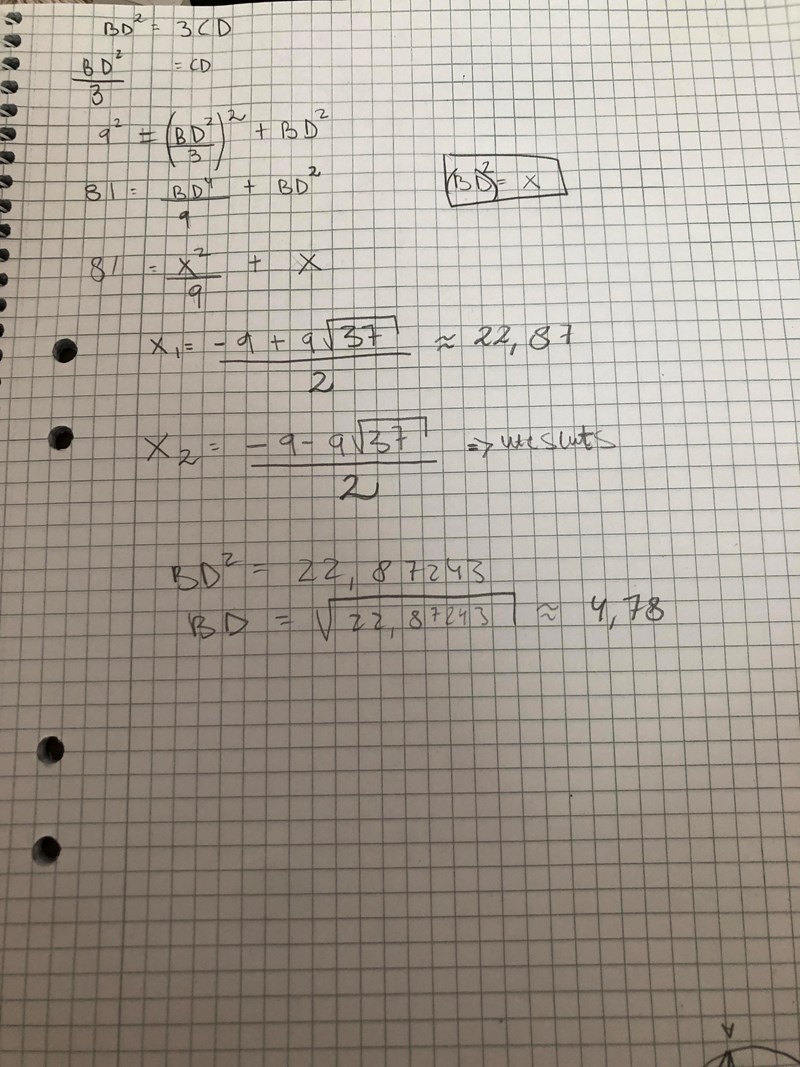 BD² = 3CD
BD²/3 = CD
9² = (BD²/3)² + BD²
81 = BD⁴/9 + BD²
(BD)² = x
81 = x²/9 + x
x₁ = (-9 + 9√37)/2 ≈ 22,87
x₂ = (-9 - 9√37)/2 ⇒ utesluts
BD² = 22,87243
BD = √22,87243 ≈ 4,78